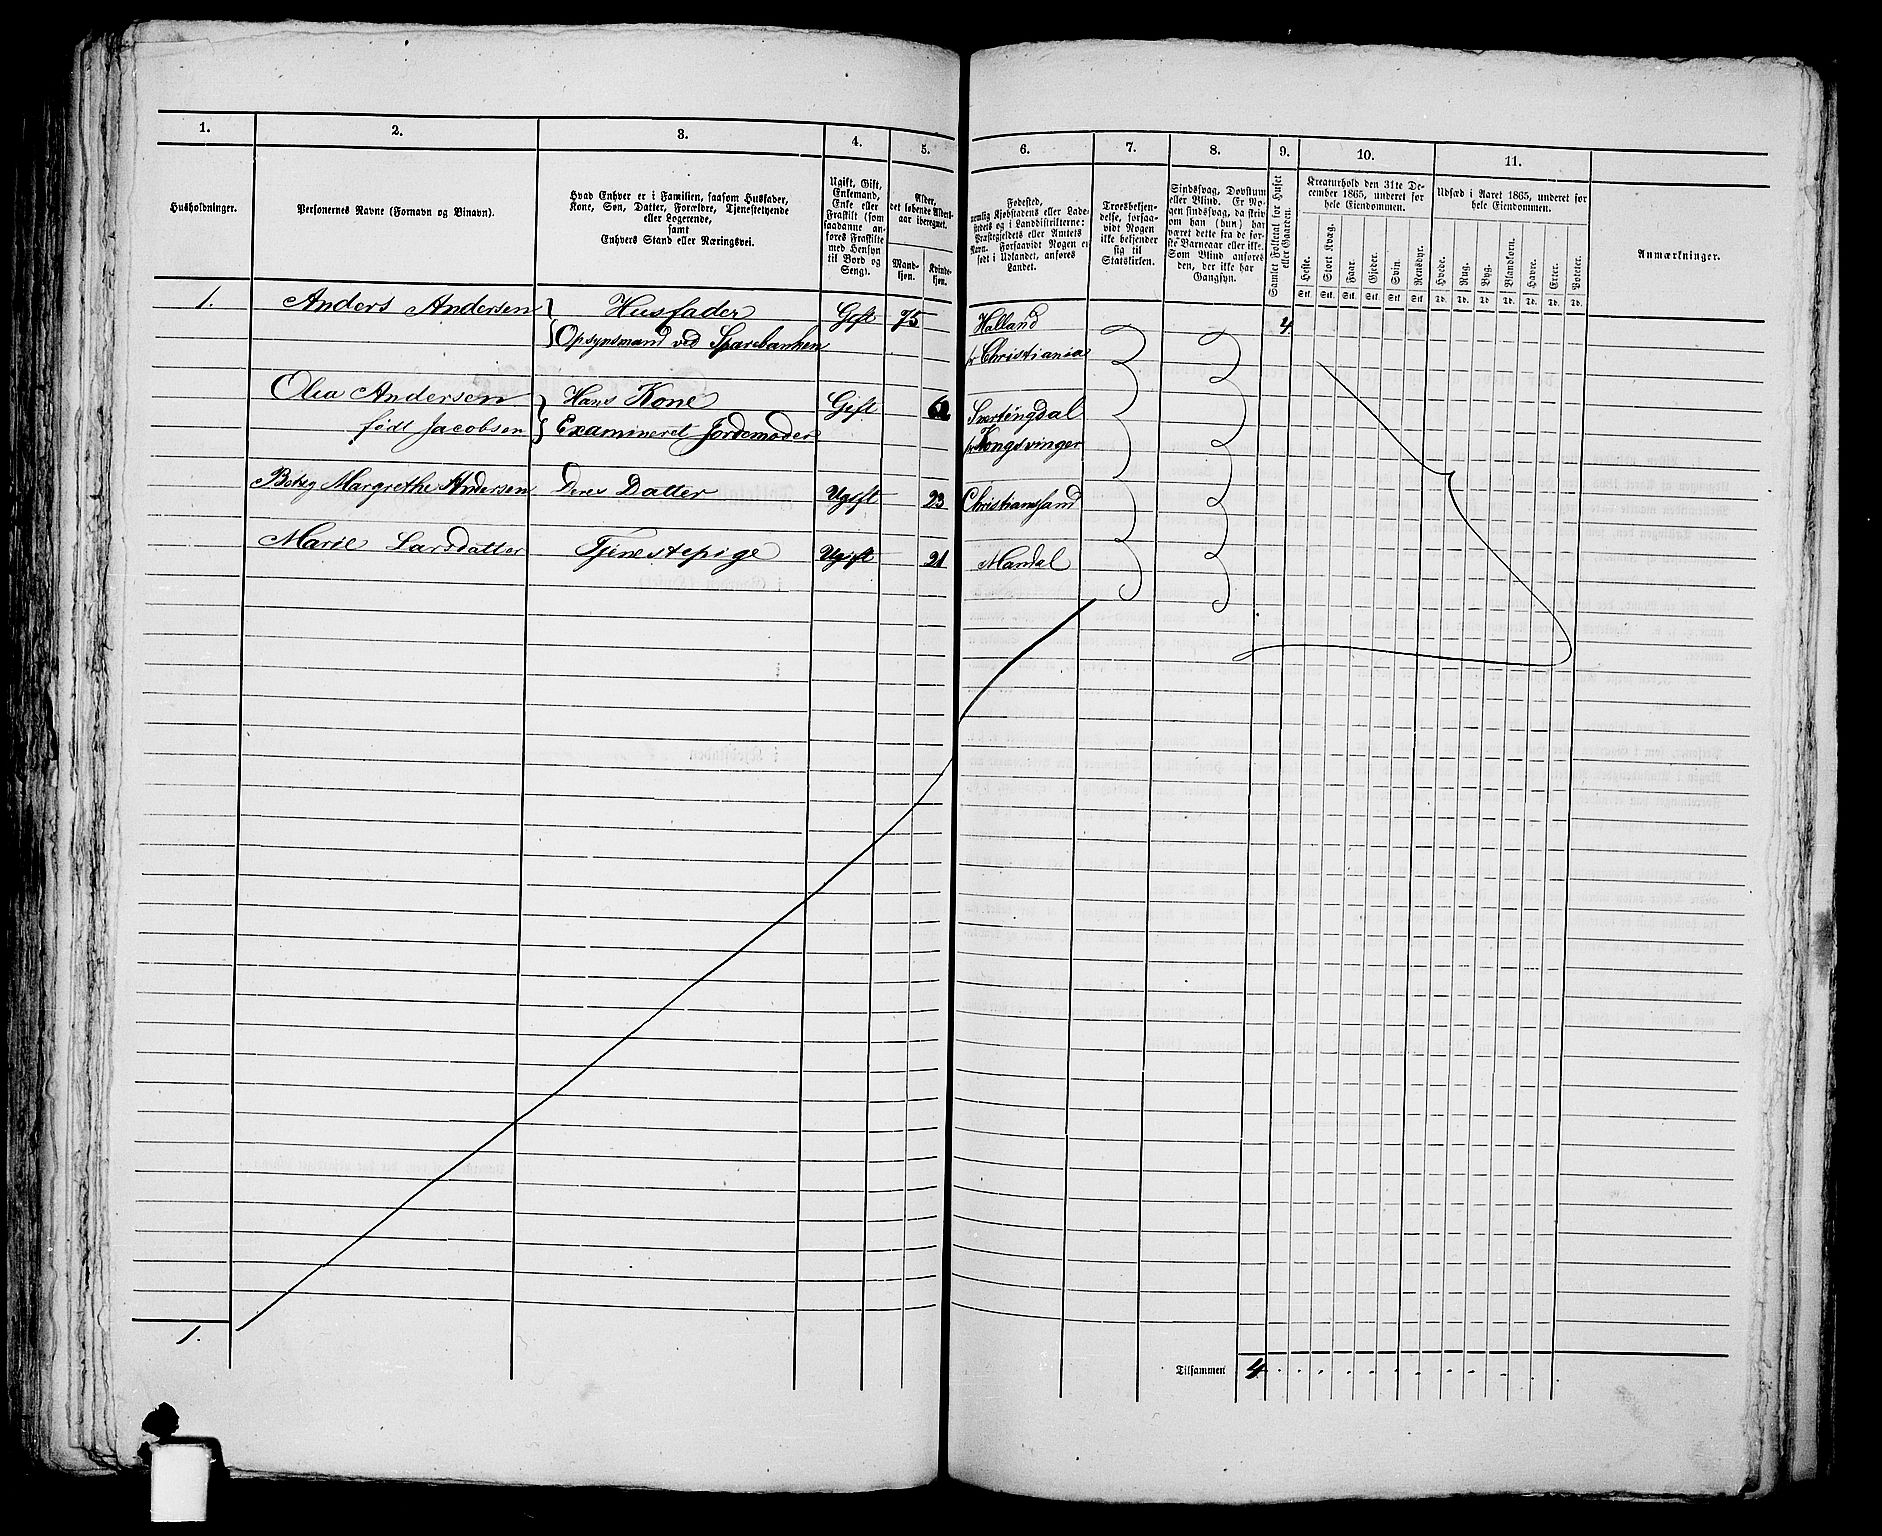 1.
2.
3.
4.
5.
6.
7.
8.
9.
10.
11.
Husholdninger.
Personernes Navne (Fornavn og Binavn).
Hvad Enhver er i Familien, saasom Husfader,
Kone, Søn, Datter, Forældre, Tjenestetyende
eller Logerende,
samt
Enhvers Stand eller Næringsvei.
Ugift, Gift,
Enkemand,
Enke eller
Fraskilt (som
saadanne an-
føres Fraskilte
med Hensyn
til Bord og
Seng).
Alder,
det løbende Alders-
aar iberegnet.
Mand-
kjøn.
Kvinde-
kjøn.
Fødested,
nemlig Kjøbstadens eller Lade-
stedets og i Landdistrikterne:
Præstegjeldets eller Amtets
Navn. Forsaavidt Nogen er
født i Udlandet, anføres
Landet.
Troesbekjen-
delse, forsaa-
vidt Nogen
ikke bekjender
sig til
Statskirken.
Sindssvag, Døvstum
eller Blind. Er No-
gen sindssvag, da skriv
om han (hun) har
været dette fra de før-
ste Barneaar eller ikke.
Som Blind anføres
den, der ikke har
Gangsyn.
Samlet Folketal for Huset
eller Gaarden.
Kreaturhold den 31te De-
cember 1865, underet for
hele Eiendommen.
Heste.
Stort Kvæg.
Faar.
Gjeder.
Svin.
Rensdyr.
Stk. Stk. Stk. Stk. Stk. Stk.
Udsæd i Aaret 1865, underet for
hele Eiendommen.
Hvede.
Rug.
Byg.
Blandkorn.
Havre.
Erter.
Poteter.
Td. Td. Td. Td. Td. Td. Td.
Anmærkninger.
1. Anders Andersen Husfader Gift 75 Halland 4
Opsynsmand ved Sparebanken pr Christiania
Olea Andersen Hans Kone Gift 62 Svertingdal
født Jacobsen Examineret Jordemoder pr Kongsvinger
Margrethe Andersen Deres Datter Ugift 23 Christianssand
Marie Larsdatter Tjenestepige Ugift 21 Mandal
1.
Tilsammen 4